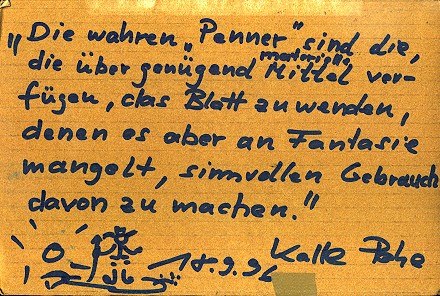 "Die wahren "Penner" sind die,
die über genügend materielle Mittel ver-
fügen, das Blatt zu wenden,
denen es aber an Fantasie
mangelt, sinnvollen Gebrauch
davon zu machen."
18.9.96 Kalle